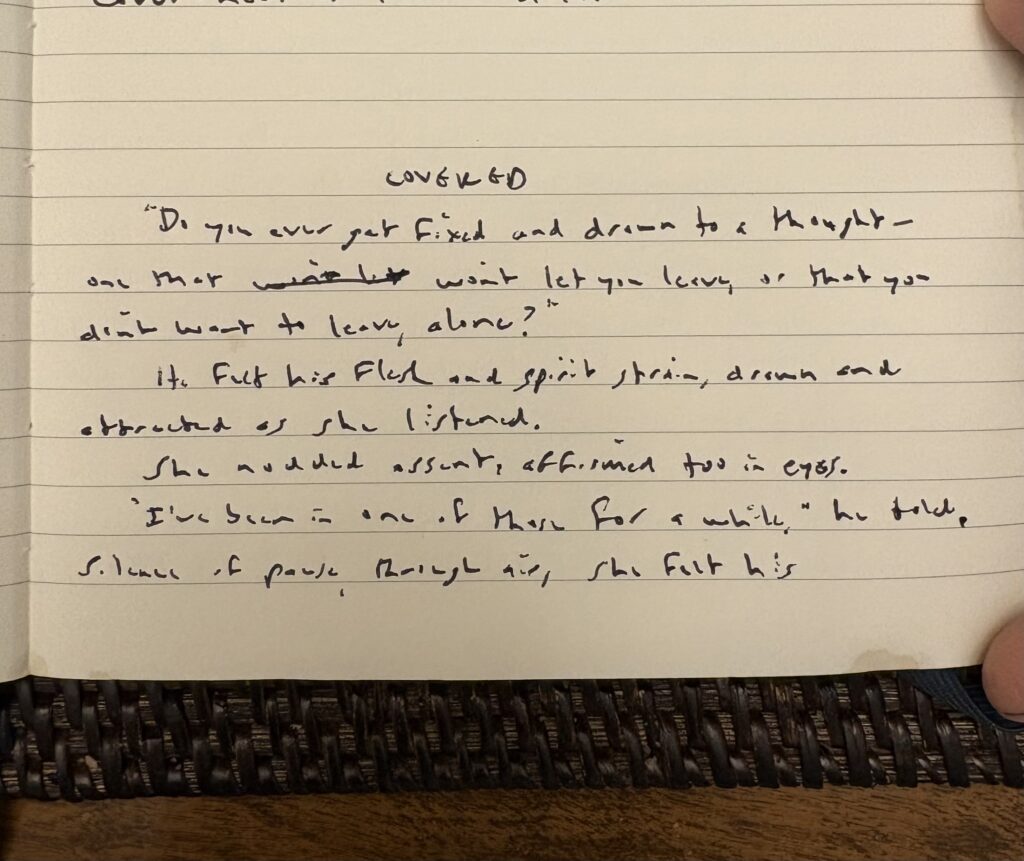 COVERED
"Do you ever get fixed and drawn to a thought—
one that won't let you leave, or that you
don't want to leave, alone?"
He felt his flesh and spirit strain, drawn and
attracted as she listened.
She nodded assent, affirmed too in eyes.
"I've been in one of those for a while," he told.
Silence of pause, through air, she felt his